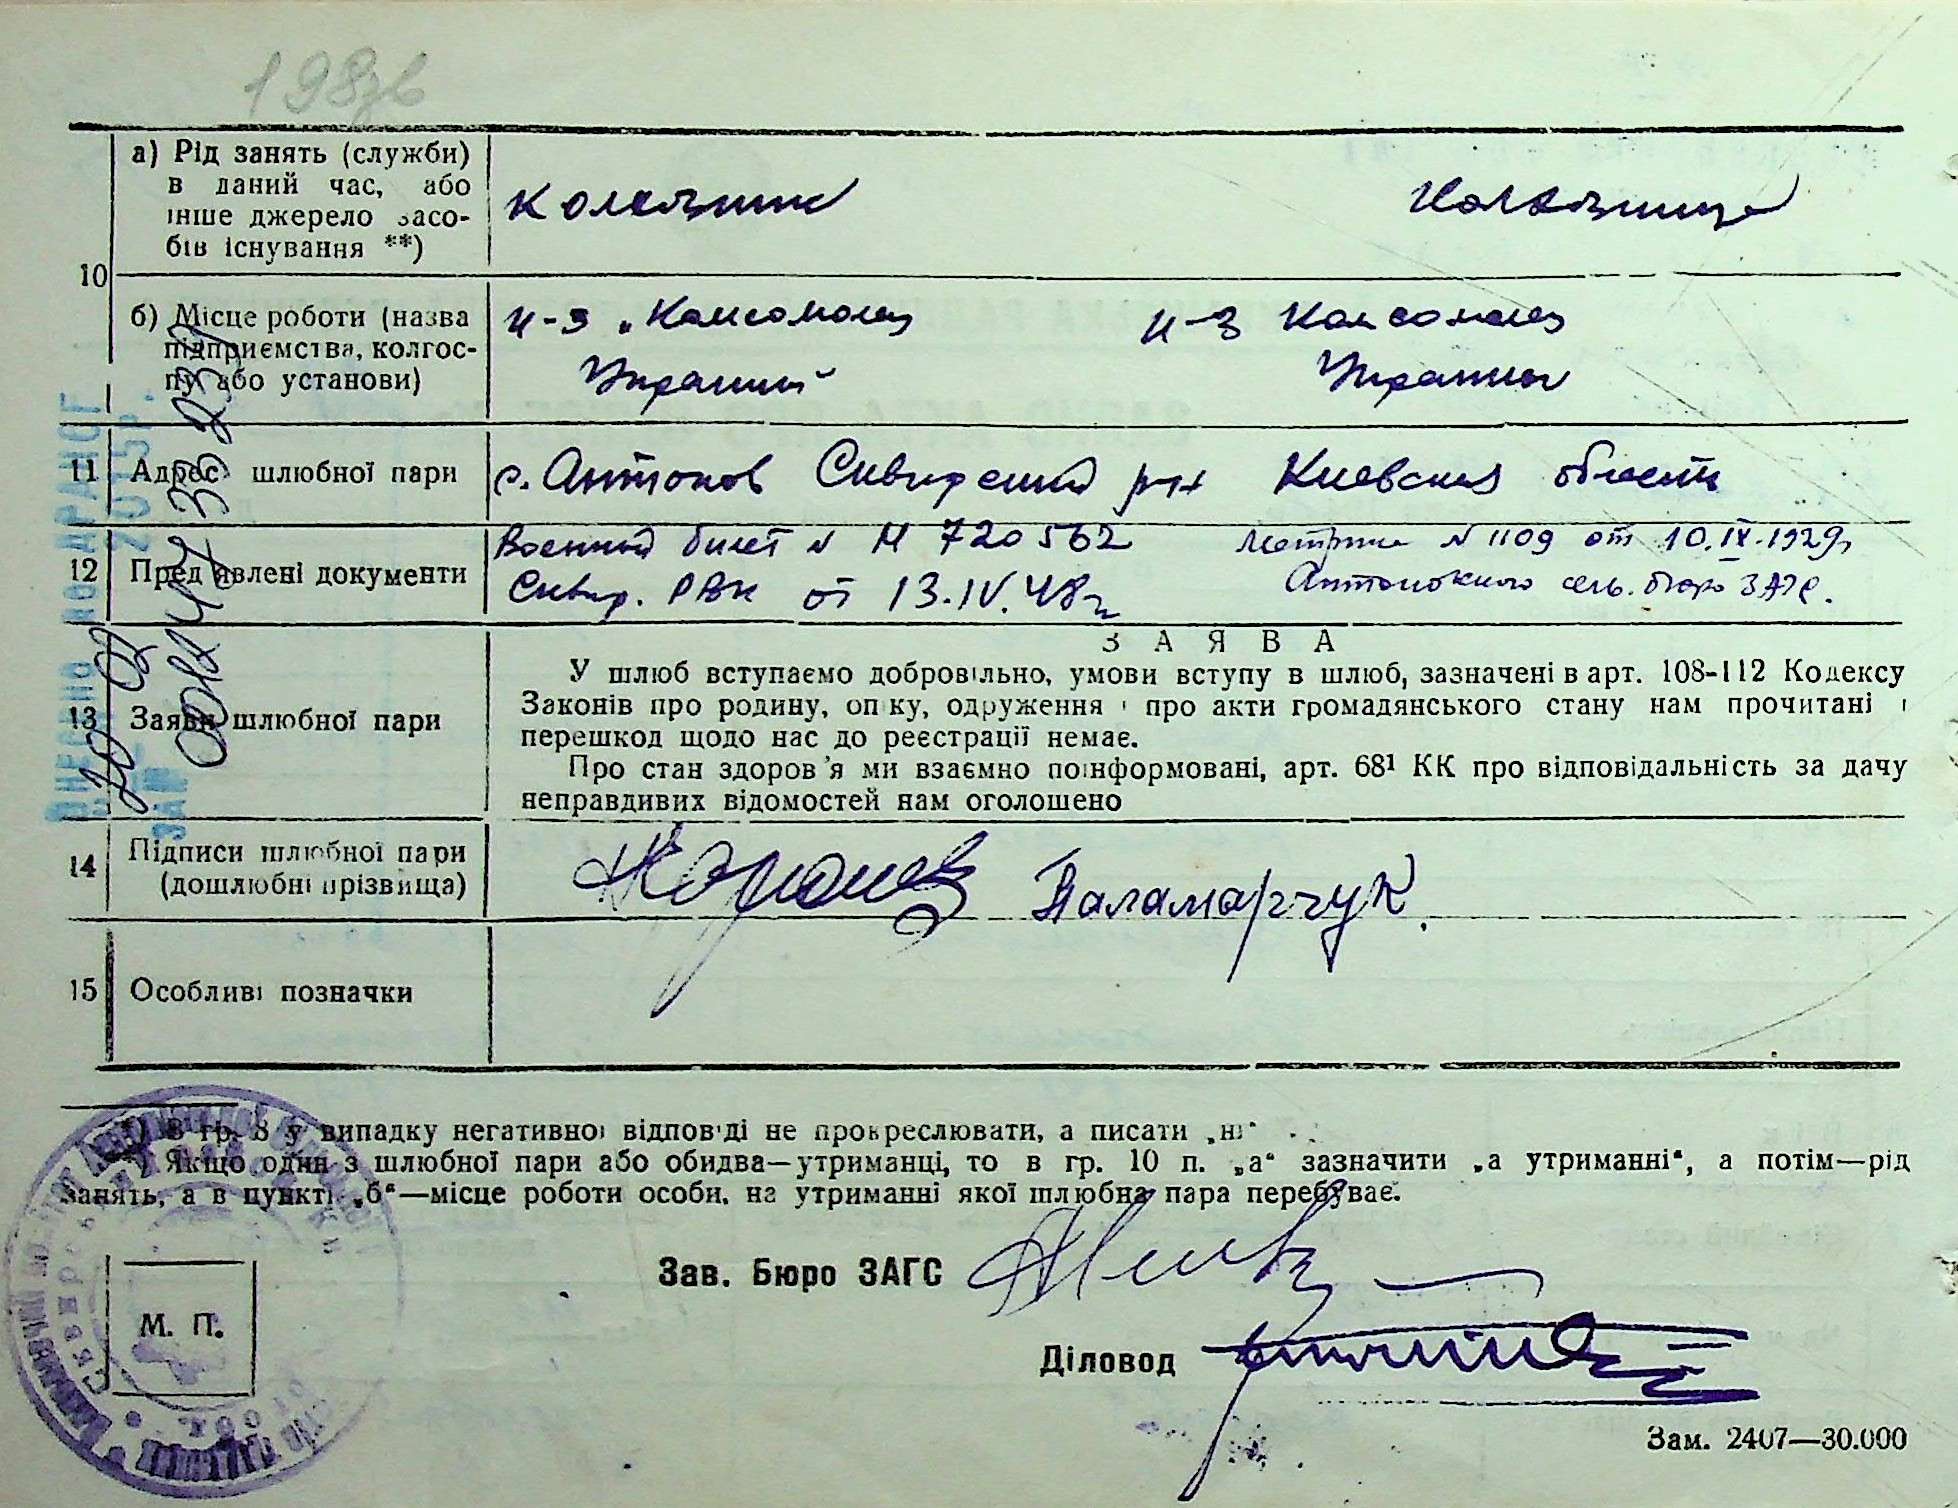 198зв
10
а) Рід занять (служби) в даний час, або інше джерело засобів існування **)
колхозник
колхозница
б) Місце роботи (назва підприємства, колгоспу або установи)
к-з „Комсомолец
к-з Комсомолец
Украины"
Украины
11 Адрес шлюбної пари
с. Антонов Сквирский р-н Киевская область
12 Пред'явлені документи
Военный билет № М 720562
Метрика № 1109 от 10.IX.1929г
Сквир. РВК от 13.IV.48г
сель. бюро ЗАГС.
13 Заява шлюбної пари
ЗАЯВА
У шлюб вступаємо добровільно, умови вступу в шлюб, зазначені в арт. 108-112 Кодексу
Законів про родину, опіку, одруження і про акти громадянського стану нам прочитані і
перешкод щодо нас до реєстрації немає.
Про стан здоров'я ми взаємно поінформовані, арт. 68¹ КК про відповідальність за дачу
неправдивих відомостей нам оголошено
14 Підписи шлюбної пари
(дошлюбні прізвища)
Паламарчук.
15 Особливі позначки
*) В гр. 8 у випадку негативної відповіді не прокреслювати, а писати „ні"
**) Якщо один з шлюбної пари або обидва—утриманці, то в гр. 10 п. „а" зазначити „а утриманні", а потім—рід
занять, а в пункті „б"—місце роботи особи, на утриманні якої шлюбна пара перебуває.
Зав. Бюро ЗАГС
М. П.
Діловод
Зам. 2407—30.000